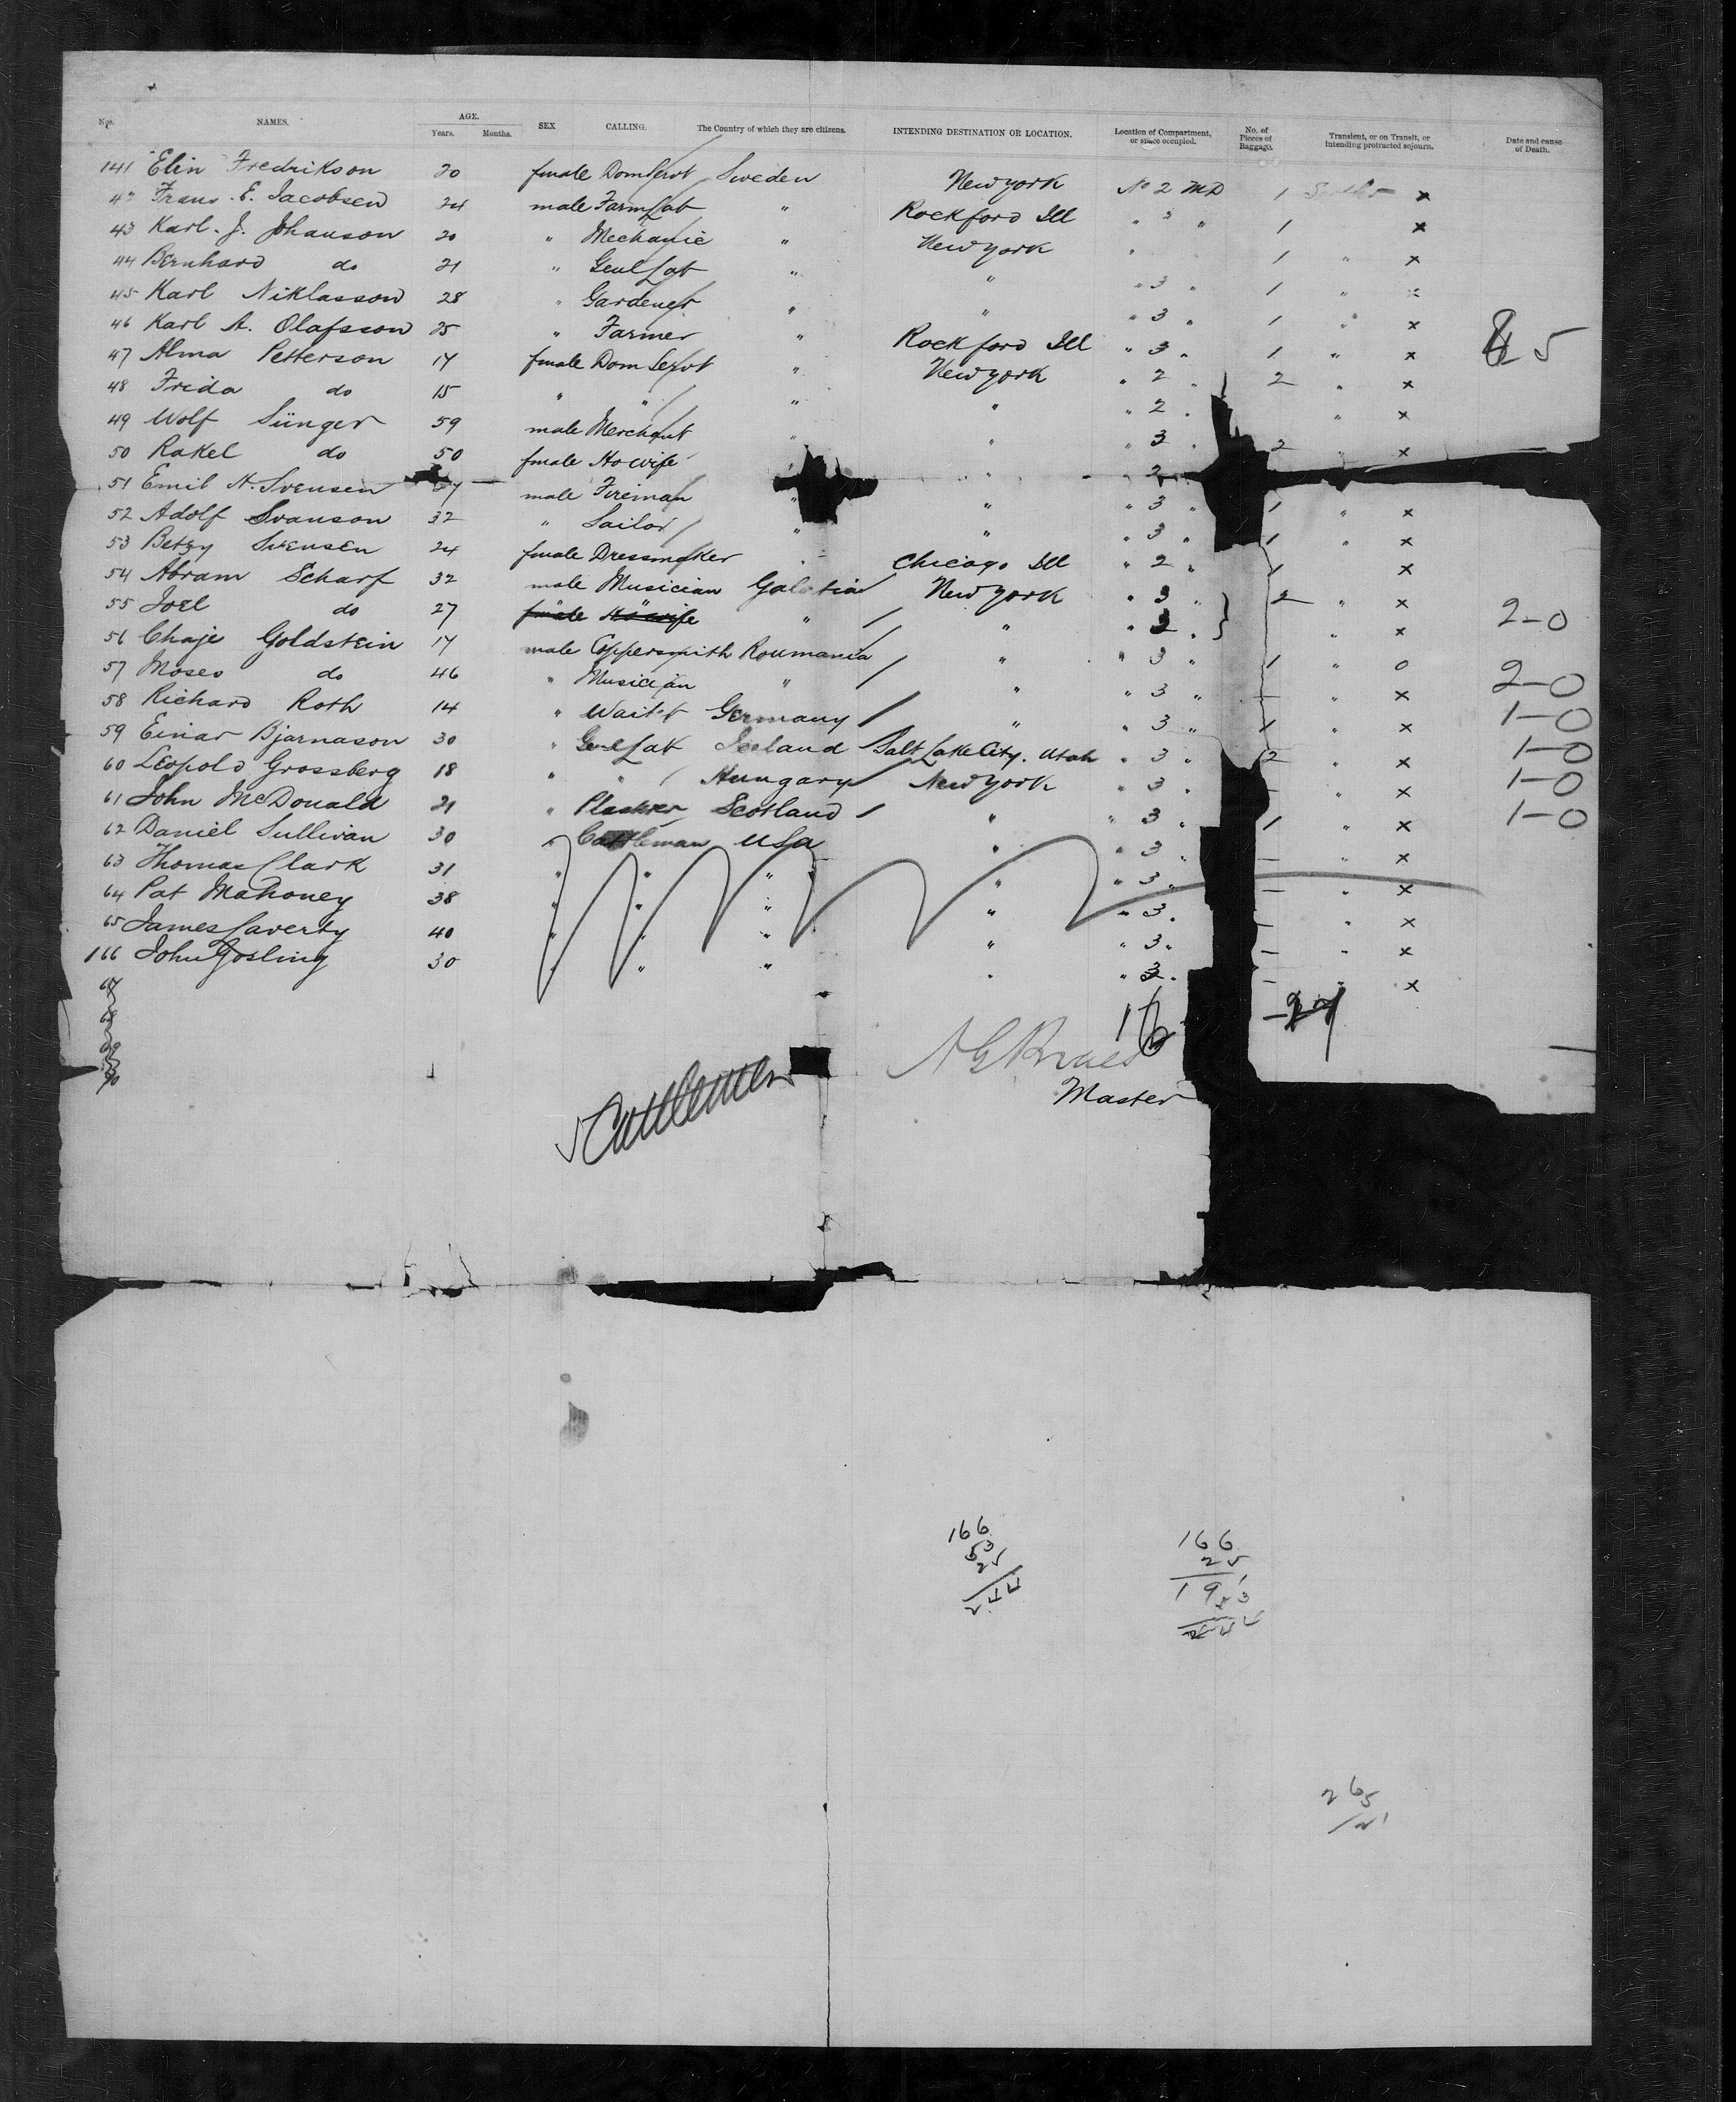 Nos. NAMES. AGE. Years. Months. SEX CALLING. The Country of which they are citizens. INTENDING DESTINATION OR LOCATION. Location of Compartment, or space occupied. No. of Pieces of Baggage. Transient, or on Transit, or intending protracted sojourn. Date and cause of Death.
141 Elin Fredrikson 20 female Dom Servt Sweden New York No 2 MD 1 x
42 Frans. E. Jacobsen 24 male Farm Lab " Rockford Ill " 3 " 1 x
43 Karl. J. Johanson 20 " Mechanic " New York " 1 " x
44 Bernhard do 21 " Genl Lab " " " 3 " 1 " x
45 Karl Niklasson 28 " Gardener " " " 3 " 1 " x
46 Karl A. Olafsson 25 " Farmer " Rockford Ill " 3 " 1 " x 5
47 Alma Petterson 17 female Dom Servt " New York " 2 " 2 " x
48 Frida do 15 " " " " " 2 " " x
49 Wolf Sünger 59 male Merchant " " " 3 " 2 " x
50 Rakel do 50 female Ho wife " " 2
51 Emil A. Svensen male Fireman " " " 3 " 1 " x
52 Adolf Svanson 32 " Sailor " " " 3 " 1 " x
53 Betzy Svensen 24 female Dressmaker " Chicago Ill " 2 " 1 x
54 Abram Scharf 32 male Musician Galatia New York " 3 " 2 " x
55 Joel do 27 female Ho wife " " " 3 " " x 2-0
56 Chaje Goldstein 17 male Coppersmith Roumania " " 3 " 1 " o
57 Moses do 46 " Musician " " " 3 " - " x 2-0
58 Richard Roth 14 " Waiter Germany " " 3 " 1 " x 1-0
59 Einar Bjarnason 30 " Genl Lab Iceland Salt Lake City. Utah " 3 " 2 " x 1-0
60 Leopold Grossberg 18 " " Hungary New York " 3 " - " x 1-0
61 John McDonald 21 " Plasterer Scotland " " 3 " 1 " x 1-0
62 Daniel Sullivan 30 " Cattleman USA " " 3 " - " x
63 Thomas Clark 31 " " " " " 3 " - " x
64 Pat Mahoney 38 " " " " " 3 " - " x
65 James Caverty 40 " " " " " 3 " - " x
166 John Gosling 30 " " " " " 3 " - " x
67
68
69
70
Master
Cattlemen
166
53
25
166
25
191
53
265